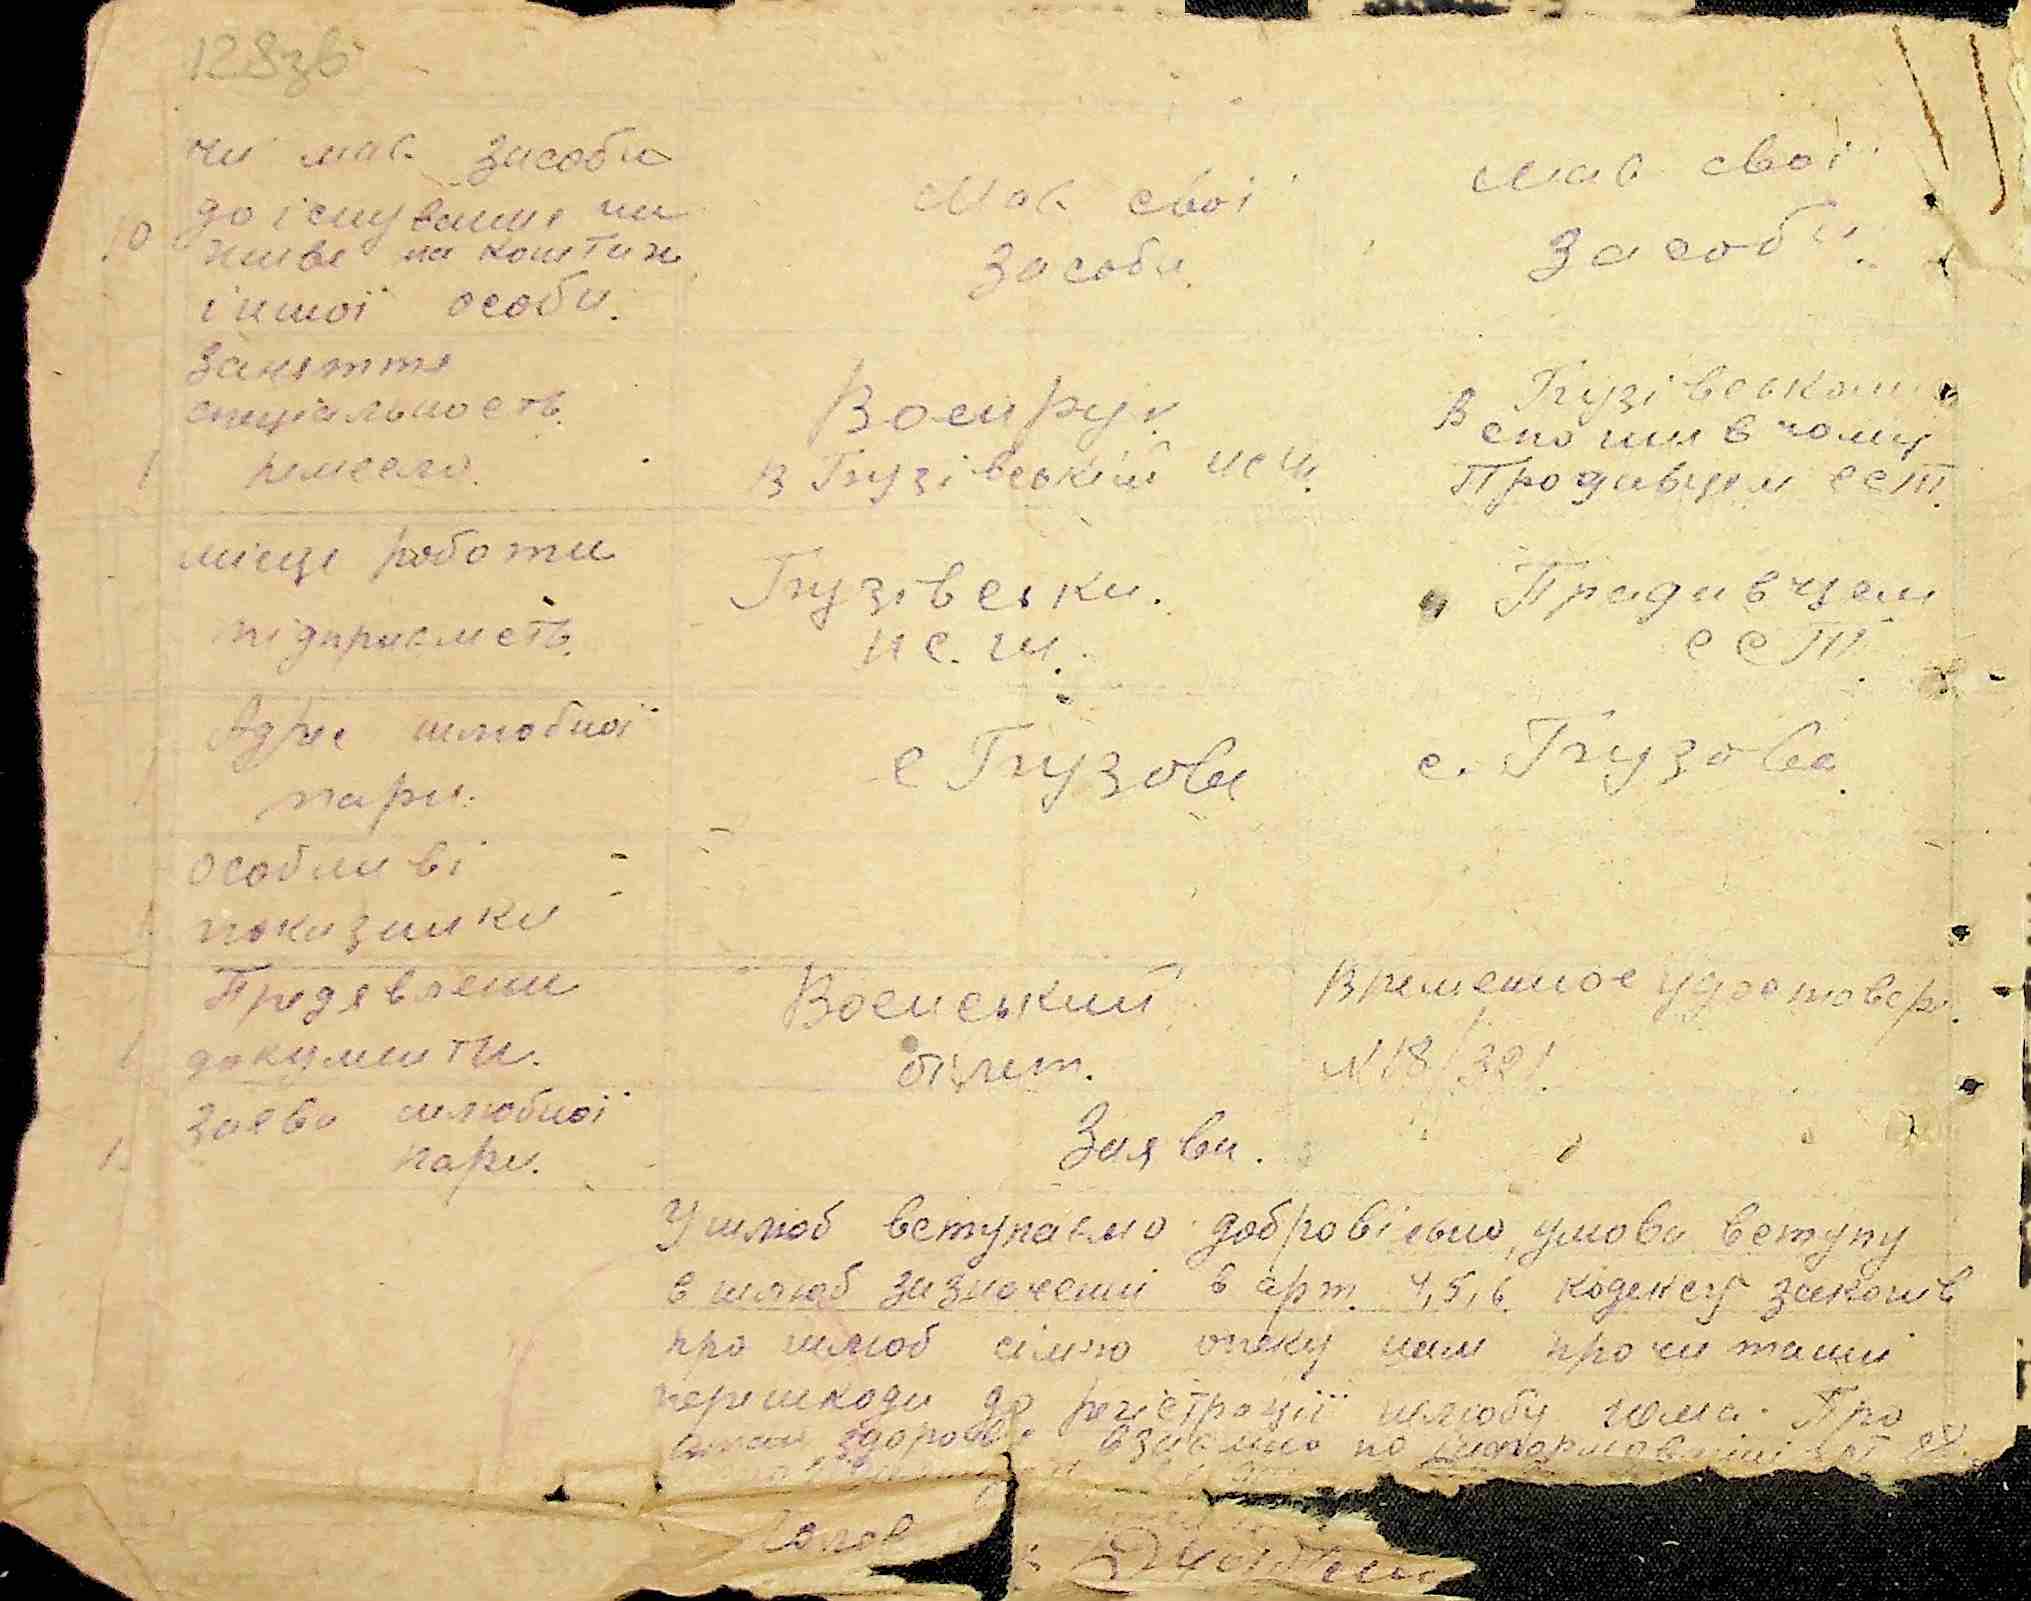 128зв
10
чи має засоби
до існування чи
живе на кошти
іншої особи.
Має свої
засоби.
Має свої
засоби.
Заняття
спеціальность
ремесло.
Воєнрук
в Пузівській нсш.
В Пузівському
споживчому
Продавцем ССТ.
місце роботи
підприємств.
Пузівськи.
нс.ш.
Продавчем
ССТ
Адрес шлюбної
пари.
с Пузова
с. Пузова.
особливі
показники
Предявлени
документи.
Военський
білет.
Временное удостовер.
N 18/321.
Заєва шлюбної
пари.
Заява.
У шлюб вступаємо добровільно, умови вступу
в шлюб зазначенні в арт. 4,5,6 кодексу законів
про шлюб сімю опеку нам прочитанні
перешкоди до регістрації шлюбу нема. Про
стан здоровя взаємно по
Голов